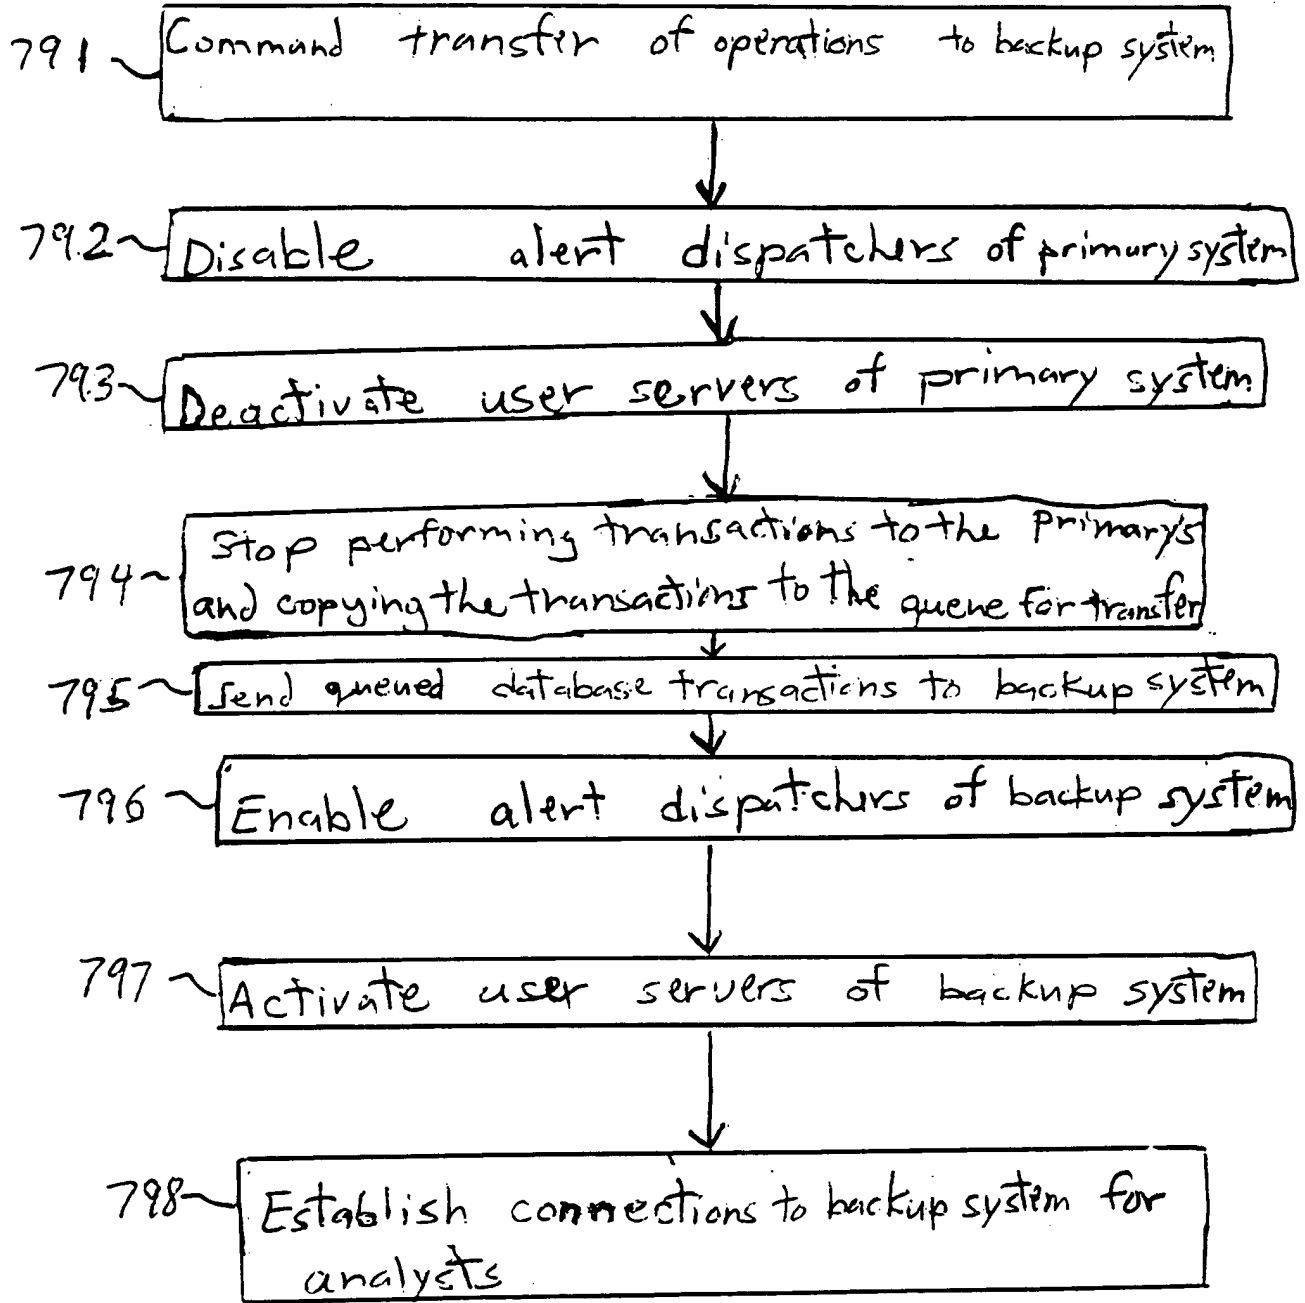 791 Command transfer of operations to backup system
792 Disable alert dispatchers of primary system
793 Deactivate user servers of primary system
Stop performing transactions to the primarys
794 and copying the transactions to the queue for transfer
795 Send queued database transactions to backup system
796 Enable alert dispatchers of backup system
797 Activate user servers of backup system
798 Establish connections to backup system for
analysts